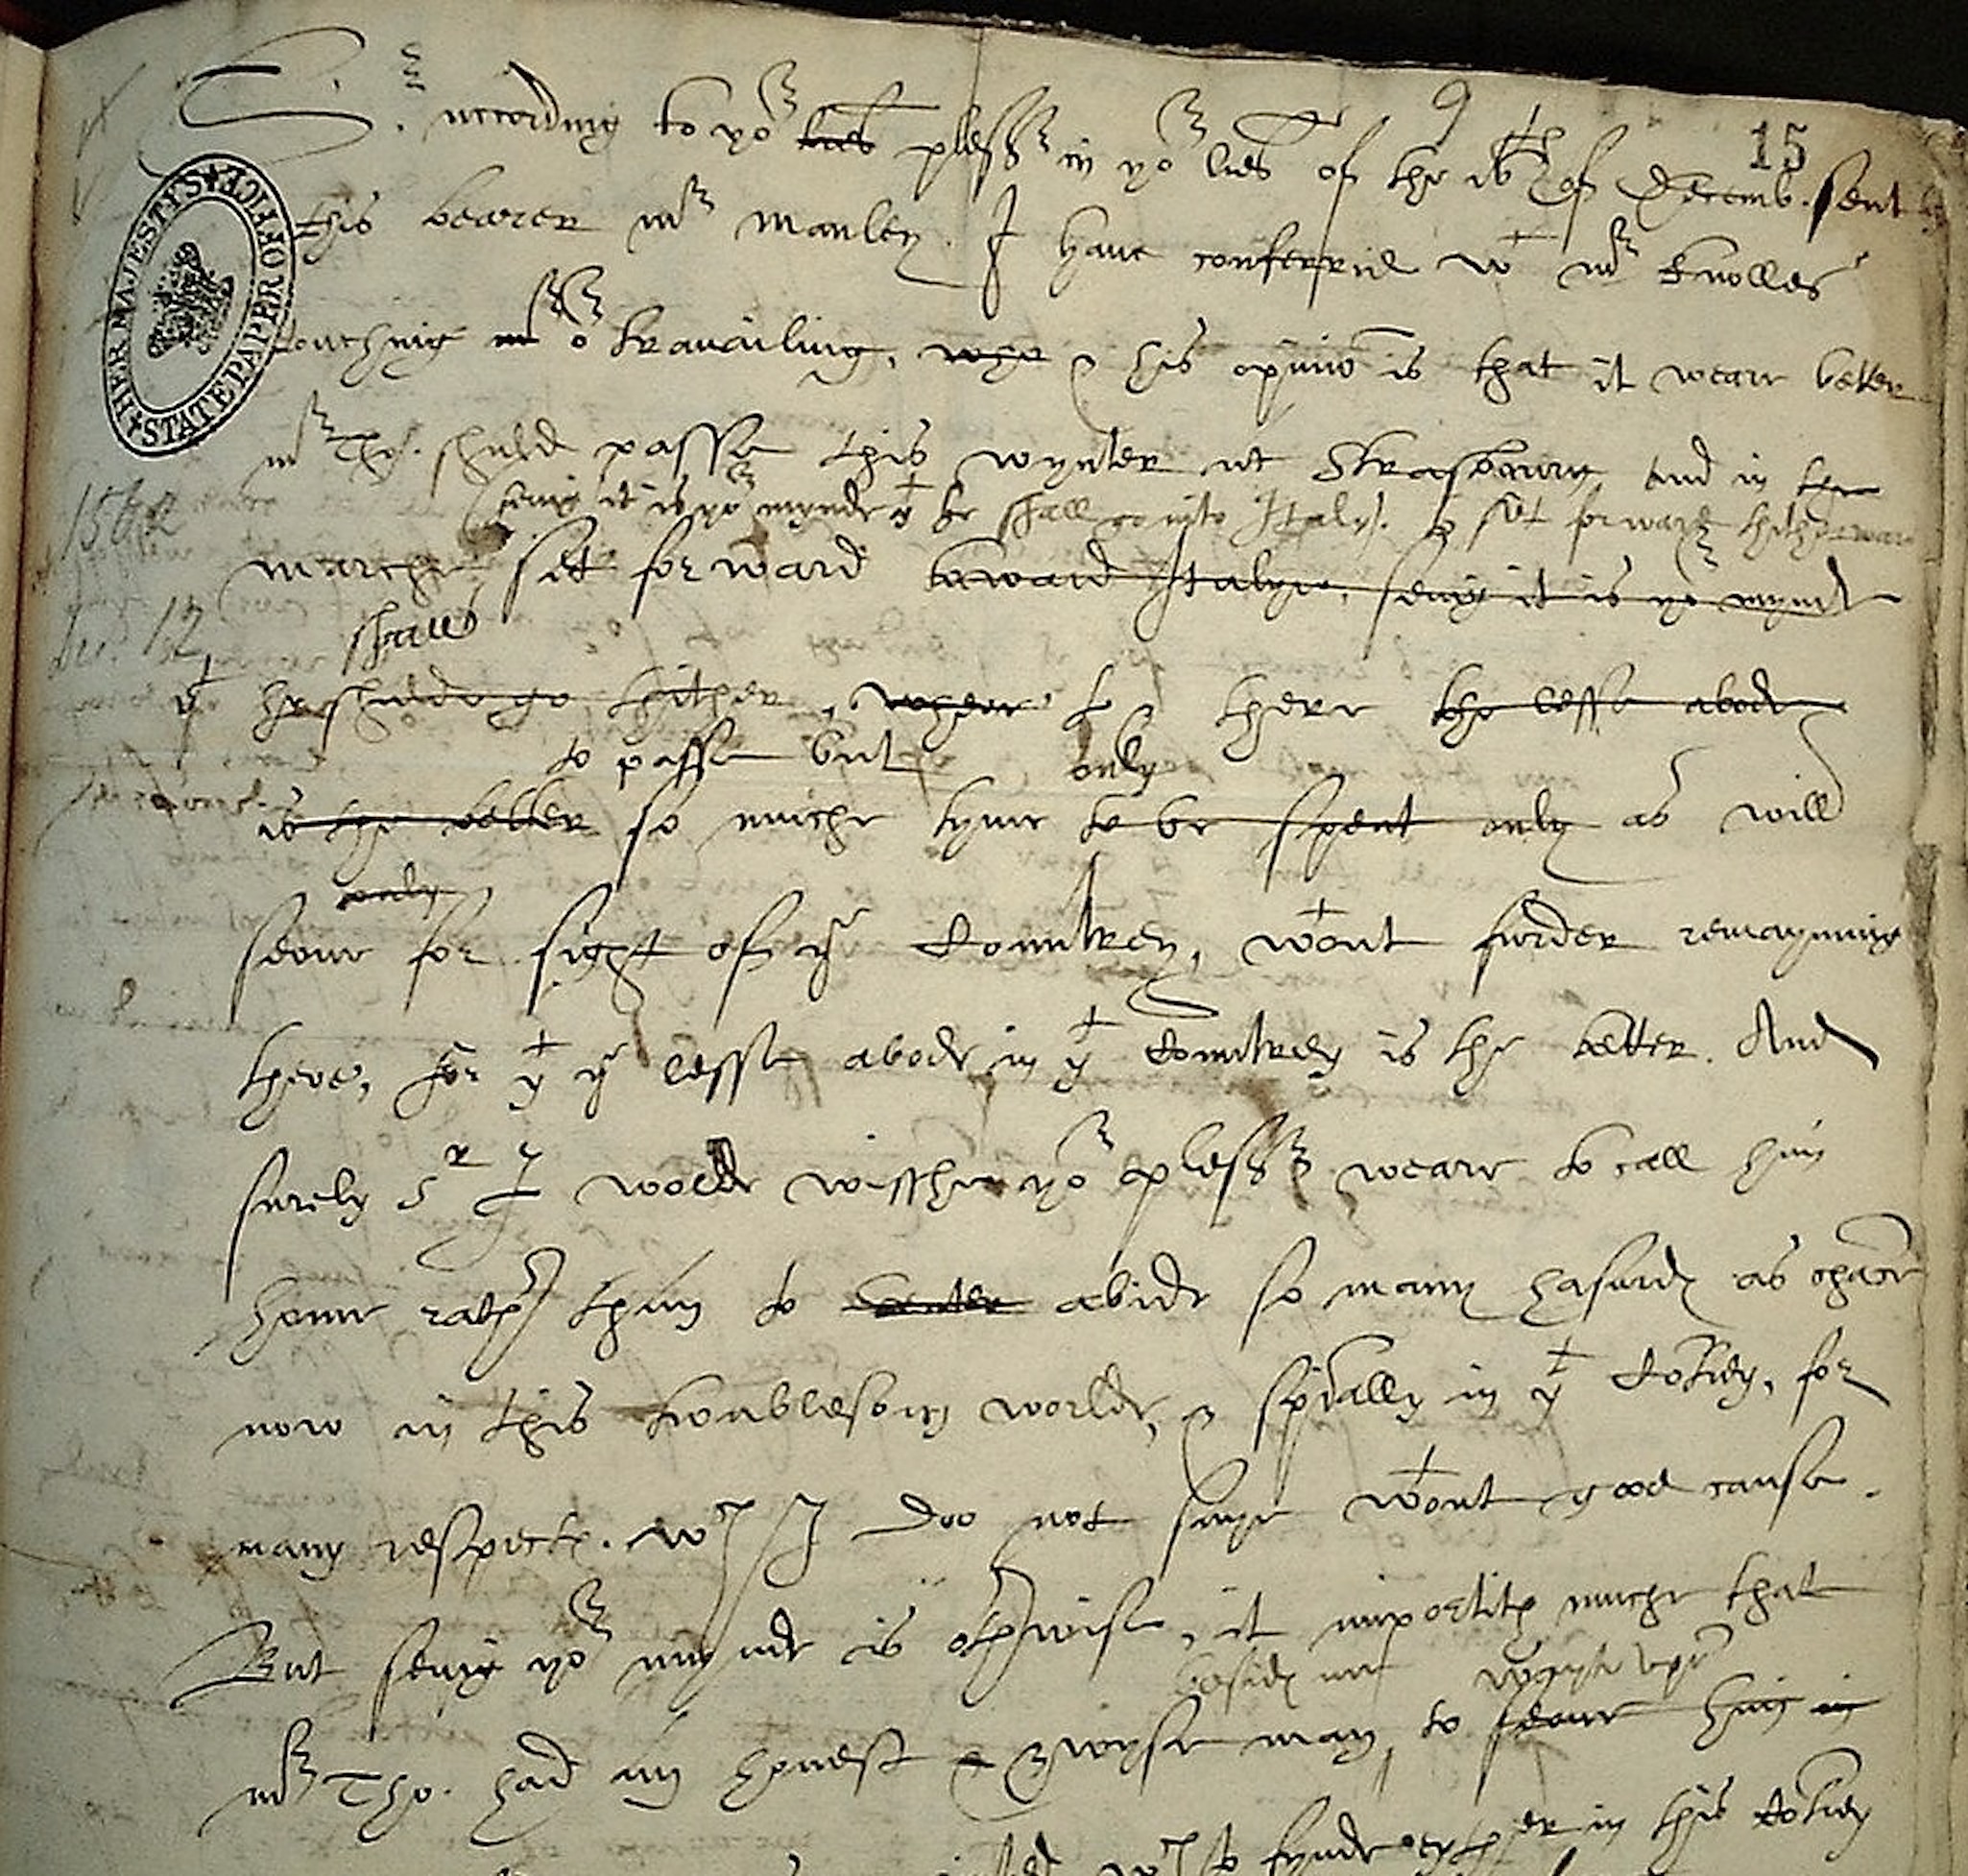 9
15
S.r according to yor lres plessr in yor lres of the ixth of Decemb. sent by
this bearer mr Manley. I have conferrid wt mr Knolles
touching mr o travailing, who & his opinio is that it weare better
mr Tho. shuld passe this wynter at Strasbourg and in the
(seing it is yor mynde yt he shall go into Italy). & set forward thitherward
marche set forward toward Italye, seing it is yor mynde
shall
yt he shulde go thither, wheor to there the lesse abode
to passe but only
is the better so muche tyme to be spent only as will
only
serve for sight of ye Countrey, wtout furder remayning
there, for yt ye lesse abode in yt Countrey is the better. And
surely Sr I wolde wisshe yor plessr weare to call him
home rather than to abide so many hasards as chace
now in this troublesom worlde, & spially in yt Cotrey, for
many respects. wch I doo not saye wtout good cause.
But seing yor mynde is otherwise, it importith muche that
besids me wayte upo
mr Tho. had an honest & wyse man, to serve him in
wch to fynde eyther in this Cotrey
1562
Dec. 12
HER MAJESTY'S STATE PAPER OFFICE